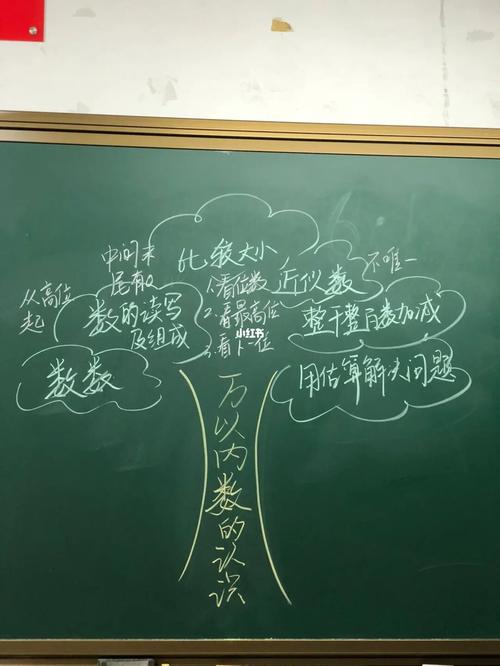 中间末
尾有0
从高位
起
数的读写
及组成
数数
比较大小
1.看位数
2.看最高位
3.看下一位
近似数
不唯一
整千整百数加减
用估算解决问题
万以内数的认识
小红书